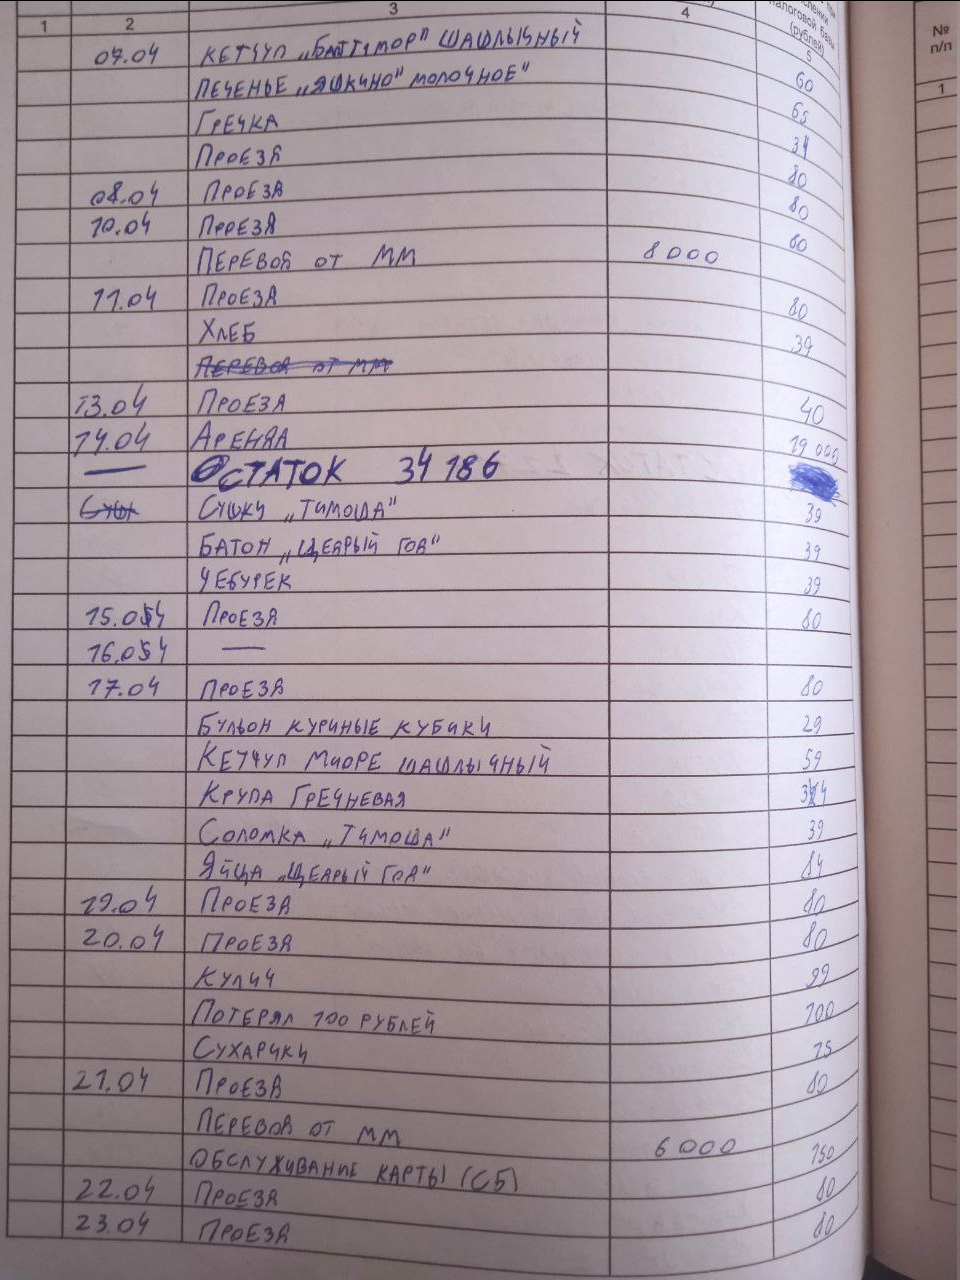 при
числении
налоговой базы
(рублей)
1 2 3 4 5
07.04 КЕТЧУП „БАЛТИМОР" ШАШЛЫЧНЫЙ 60
ПЕЧЕНЬЕ „ЯШКИНО" МОЛОЧНОЕ" 65
ГРЕЧКА 34
ПРОЕЗД 80
08.04 ПРОЕЗД 80
10.04 ПРОЕЗД 80
ПЕРЕВОД ОТ ММ 8000
11.04 ПРОЕЗД 80
ХЛЕБ 39
ПЕРЕВОД ОТ ММ
13.04 ПРОЕЗД 40
14.04 АРЕНДА 19 000
— ОСТАТОК 34 186
Суш СУШКИ „ТИМОША" 39
БАТОН „ЩЕДРЫЙ ГОД" 39
ЧЕБУРЕК 39
15.04 ПРОЕЗД 80
16.04 —
17.04 ПРОЕЗД 80
БУЛЬОН КУРИНЫЕ КУБИКИ 29
КЕТЧУП МИОРЕ ШАШЛЫЧНЫЙ 59
КРУПА ГРЕЧНЕВАЯ
СОЛОМКА „ТИМОША" 39
ЯЙЦА „ЩЕДРЫЙ ГОД" 84
19.04 ПРОЕЗД 80
20.04 ПРОЕЗД 80
КУЛИЧ 99
ПОТЕРЯЛ 100 РУБЛЕЙ 100
СУХАРИКИ 25
21.04 ПРОЕЗД 80
ПЕРЕВОД ОТ ММ 6000
ОБСЛУЖИВАНИЕ КАРТЫ (СБ) 150
22.04 ПРОЕЗД 80
23.04 ПРОЕЗД 80
№
п/п
1